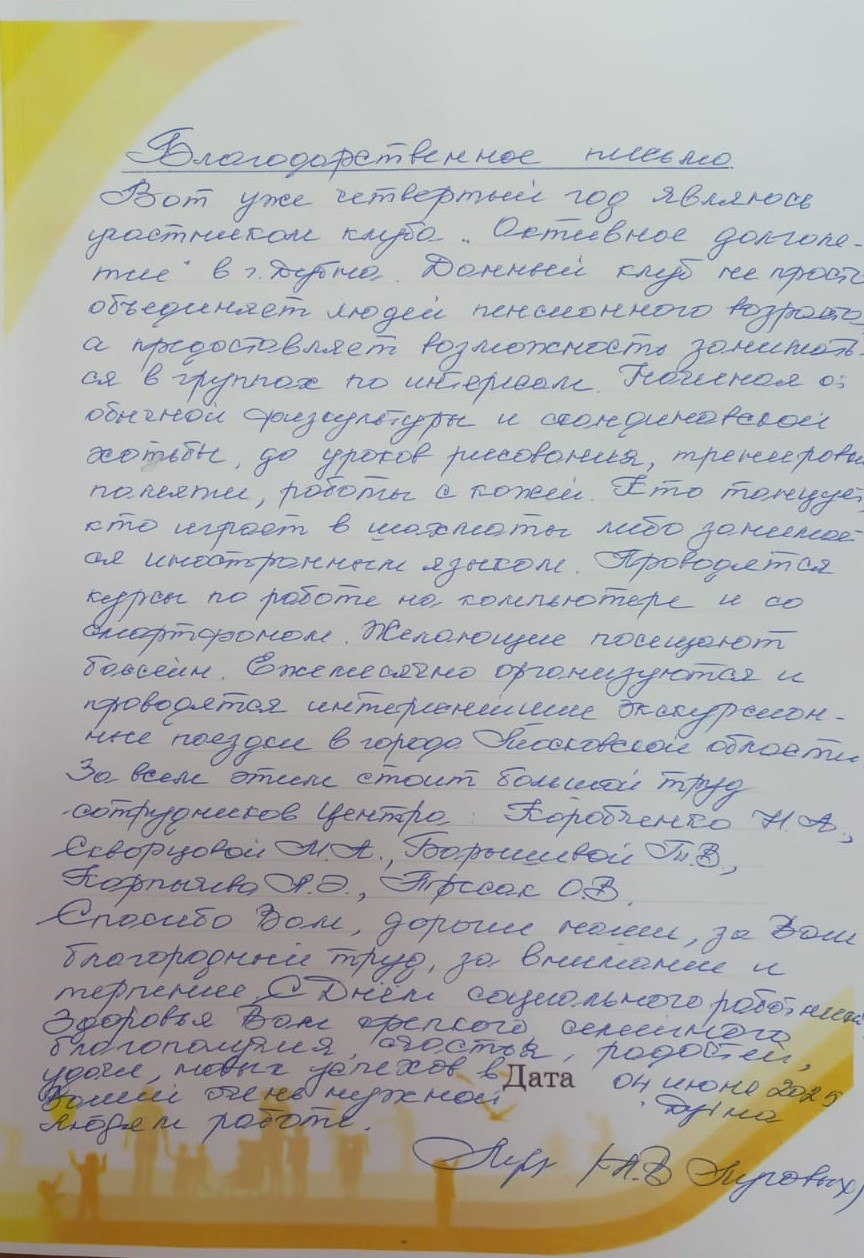 Благодарственное письмо
Вот уже четвертый год являюсь
участником клуба „Активное долголе-
тие" в г. Дубна. Данный клуб не просто
объединяет людей пенсионного возраста,
а предоставляет возможность занимать-
ся в группах по интересам. Начиная от
обычной физкультуры и скандинавской
хотьбы, до уроков рисования, тренировки
памяти, работы с кожей. Кто танцует,
кто играет в шахматы либо занимает-
ся иностранным языком. Проводятся
курсы по работе на компьютере и со
смартфоном. Желающие посещают
бассейн. Ежемесячно организуются и
проводятся интереснейшие экскурсион-
ные поездки в города Московской области.
За всем этим стоит большой труд
сотрудников Центра: Коробченко Н.А.,
Скворцовой М.А., Барышевой Т.В.,
О.В.
Спасибо Вам, дорогие наши, за Ваш
благородный труд, за внимание и
терпение. С Днём социального работника!
Здоровья Вам крепкого семейного
благополучия, счастья, радостей,
удачи, новых успехов в
Вашей очень нужной
людям работе.
Дата 04 июня 2025
Дубна